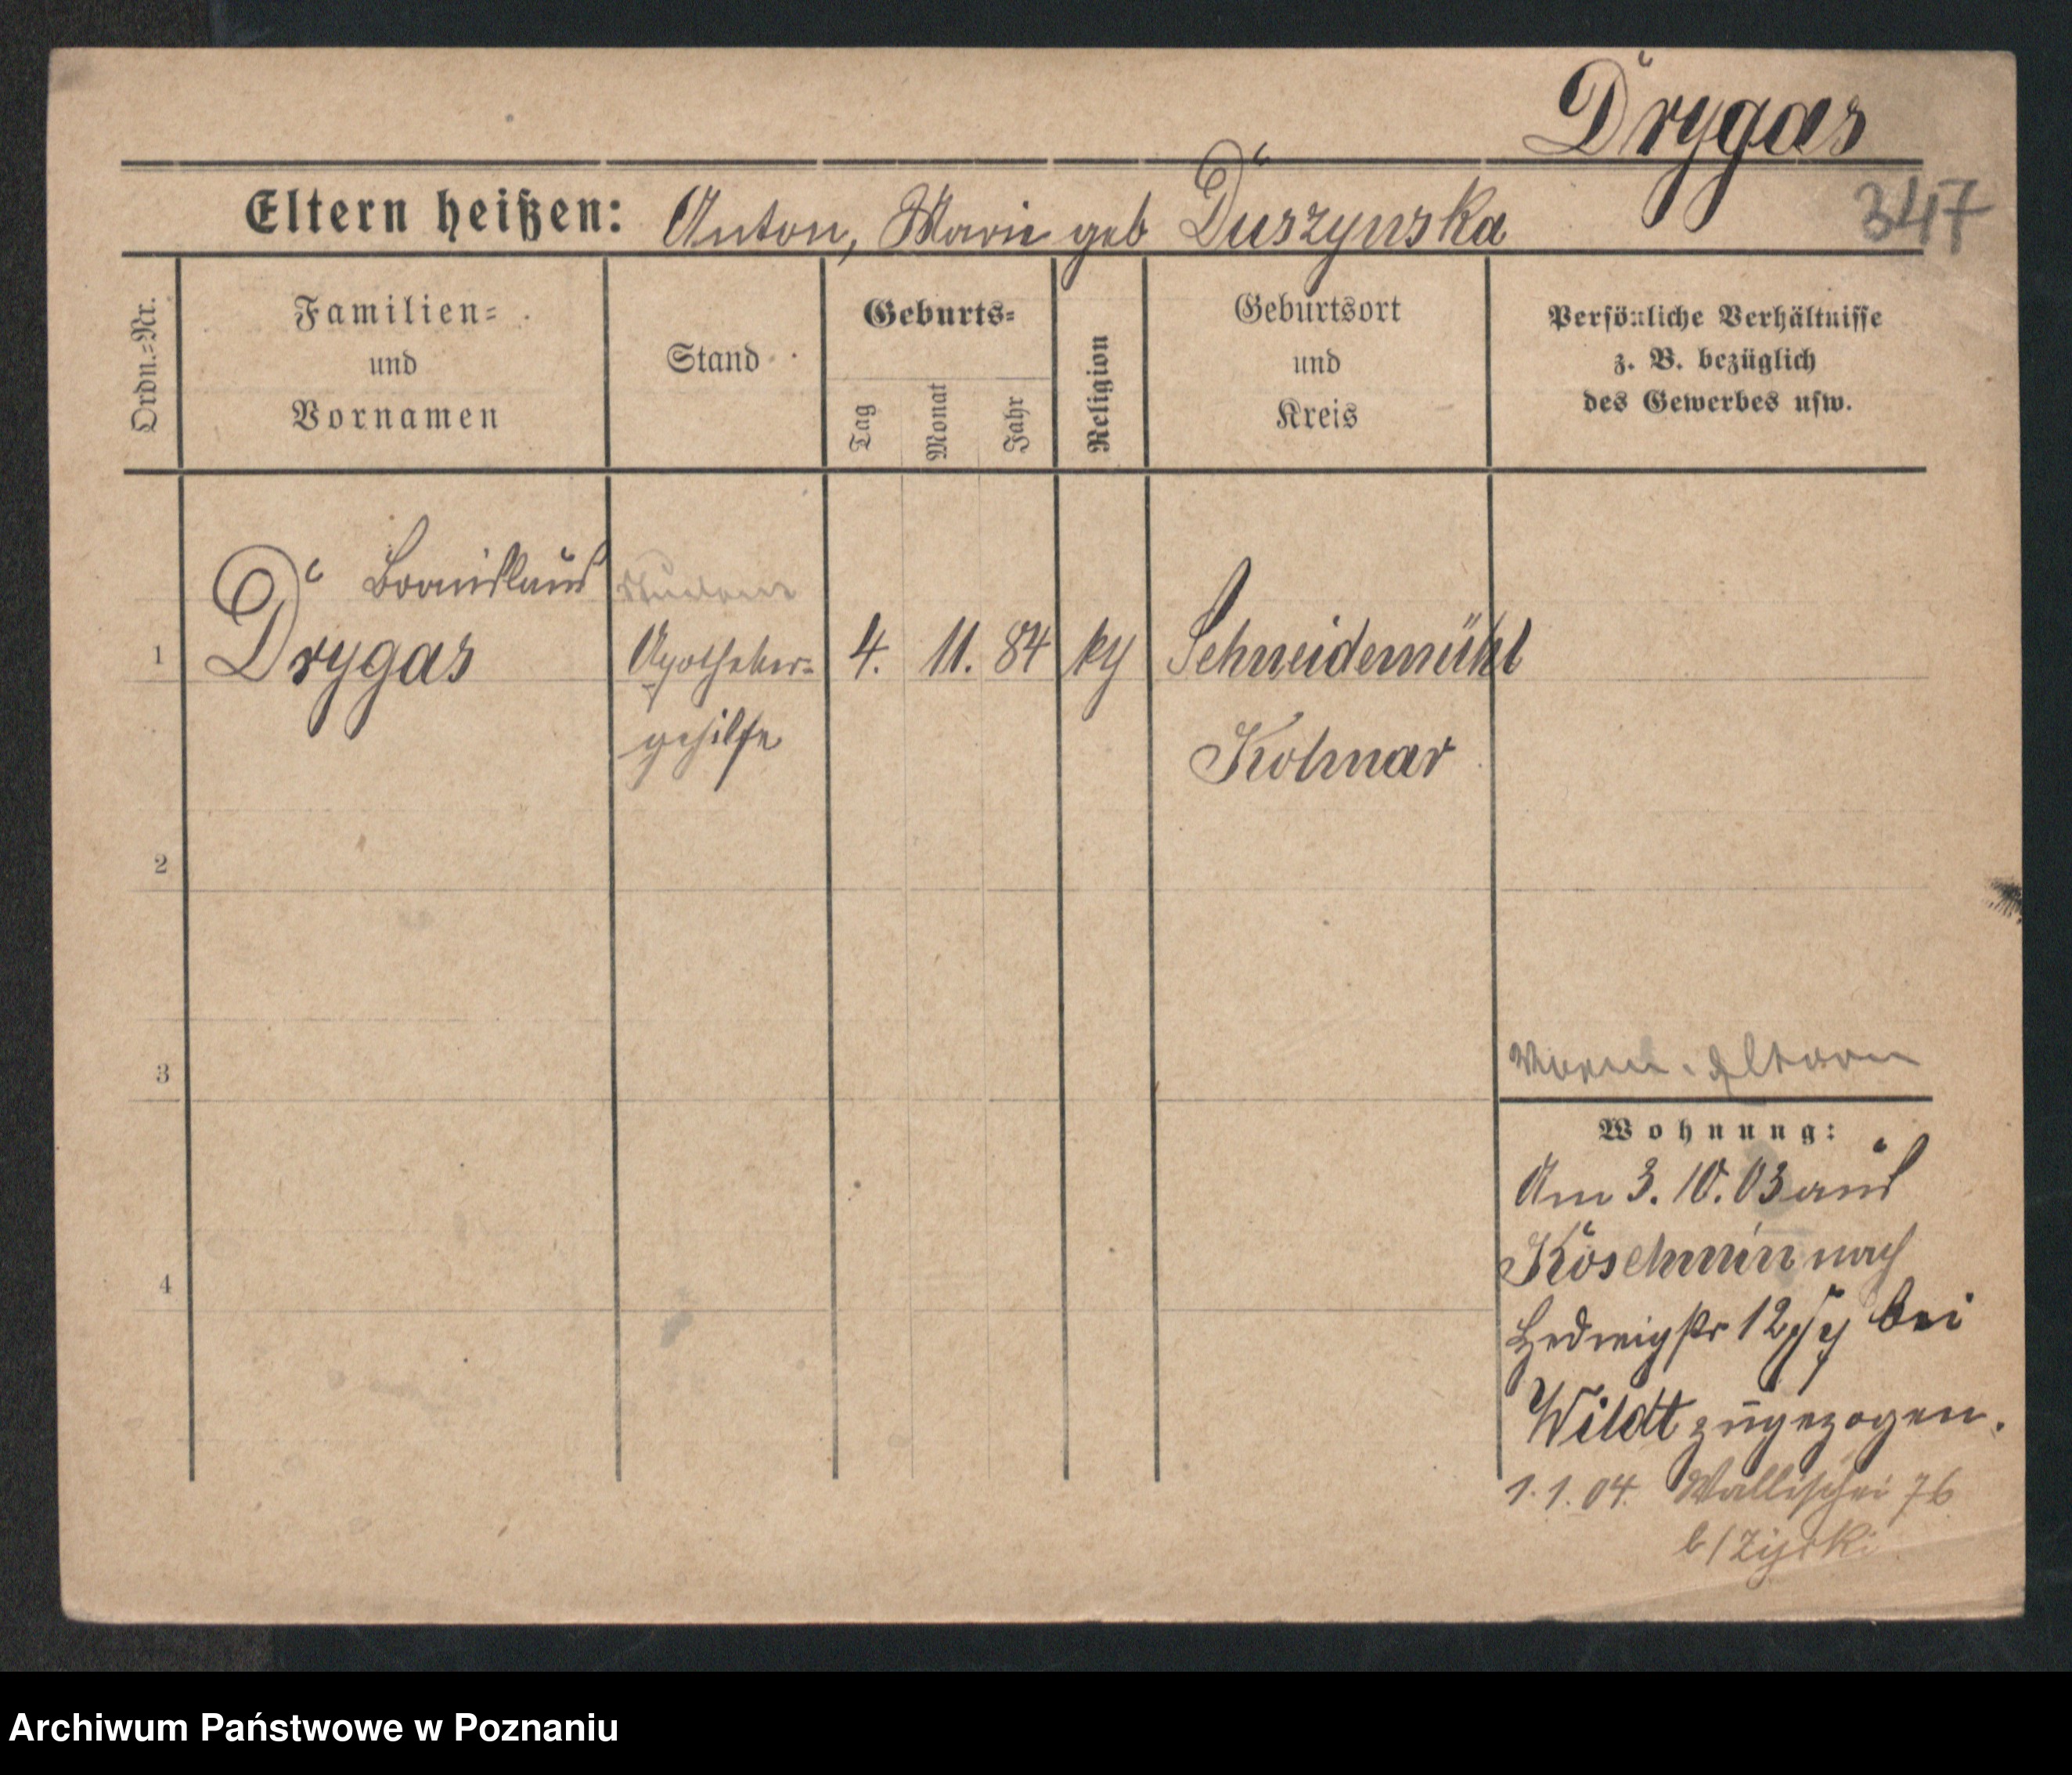 Drygas
347
Eltern heißen: Anton, Marie geb Duszynska
Ordn.=Nr.
Familien=
und
Vornamen
Stand
Geburts=
Tag
Monat
Jahr
Religion
Geburtsort
und
Kreis
Persönliche Verhältnisse
z. B. bezüglich
des Gewerbes usw.
1
Bronislaus
Drygas
Apotheker=
gehilfe
4. 11. 84
Schneidemühl
Kolmar
2
3
4
Wohnung:
Am 3. 10. 03 aus
Koschmin nach
Hedwigstr 12 bei
Wildt zugezogen.
1. 1. 04. Wallischei 76
b/
Archiwum Państwowe w Poznaniu